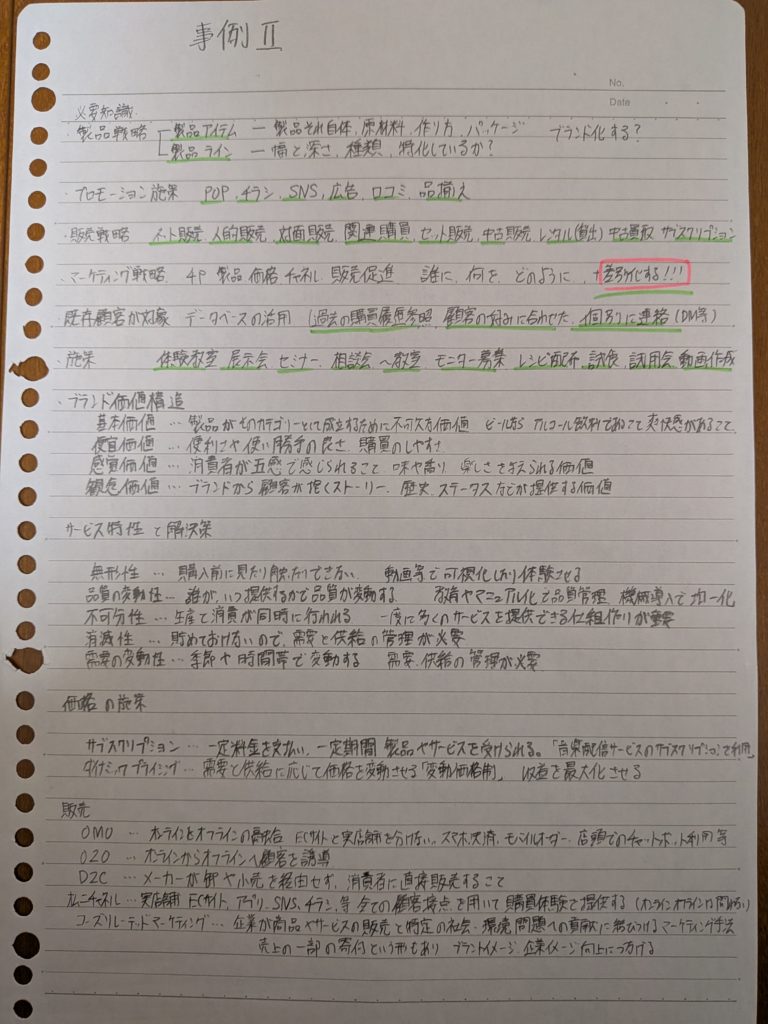 事例Ⅱ
No.
Date
必要知識
・製品戦略 製品アイテム ー 製品それ自体、原材料、作り方、パッケージ ブランド化する?
製品ライン ー 幅と深さ、種類、特化しているか?
・プロモーション施策 POP、チラシ、SNS、広告、口コミ、品揃え
・販売戦略 ネット販売、人的販売、対面販売、関連購買、セット販売、中古販売、レンタル(貸出)中古買取 サブスクリプション
・マーケティング戦略 4P 製品 価格 チャネル 販売促進 誰に、何を、どのように、+差別化する!!!
既存顧客が対象 データベースの活用 (過去の購買履歴参照、顧客の好みに合わせた、個別に連絡(DM等)
・施策 体験教室、展示会、セミナー、相談会、〜教室、モニター募集 レシピ配布、試食、試用会 動画作成
・ブランド価値構造
基本価値 … 製品がそのカテゴリーとして成立するために不可欠な価値 ビールなら アルコール飲料であること 爽快感があること
便宜価値 … 便利さや使い勝手の良さ、購買のしやすさ
感覚価値 … 消費者が五感で感じられること 味や香り 楽しさを与えられる価値
観念価値 … ブランドから顧客が抱くストーリー、歴史、ステータスなどが提供する価値
サービス特性と解決策
無形性 … 購入前に見たり触れたりできない 動画等で可視化したり体験させる
品質の変動性 … 誰が、いつ提供するかで品質が変動する 教育やマニュアル化で品質管理、機械導入で均一化
不可分性 … 生産と消費が同時に行われる 一度に多くのサービスを提供できる仕組作りが重要
消滅性 … 貯めておけないので、需要と供給の管理が必要
需要の変動性 … 季節や時間帯で変動する 需要、供給の管理が必要
価格の施策
サブスクリプション … 一定料金を支払い、一定期間 製品やサービスを受けられる。「音楽配信サービスのサブスクリプションを利用」
ダイナミックプライシング … 需要と供給に応じて価格を変動させる「変動価格制」 収益を最大化させる
販売
OMO … オンラインとオフラインの融合 ECサイトと実店舗を分けない。スマホ決済、モバイルオーダー、店頭でのチャットボット利用等
O2O … オンラインからオフラインへ顧客を誘導
D2C … メーカーが卸や小売を経由せず、消費者に直接販売すること
オムニチャネル … 実店舗 ECサイト、アプリ、SNS、チラシ、等 全ての顧客接点を用いて購買体験を提供する(オンラインオフラインは問わない)
コーズリレーテッドマーケティング … 企業が商品やサービスの販売と特定の社会・環境問題への貢献に結びつけるマーケティング手法
売上の一部の寄付という形もあり ブランドイメージ、企業イメージ向上につなげる